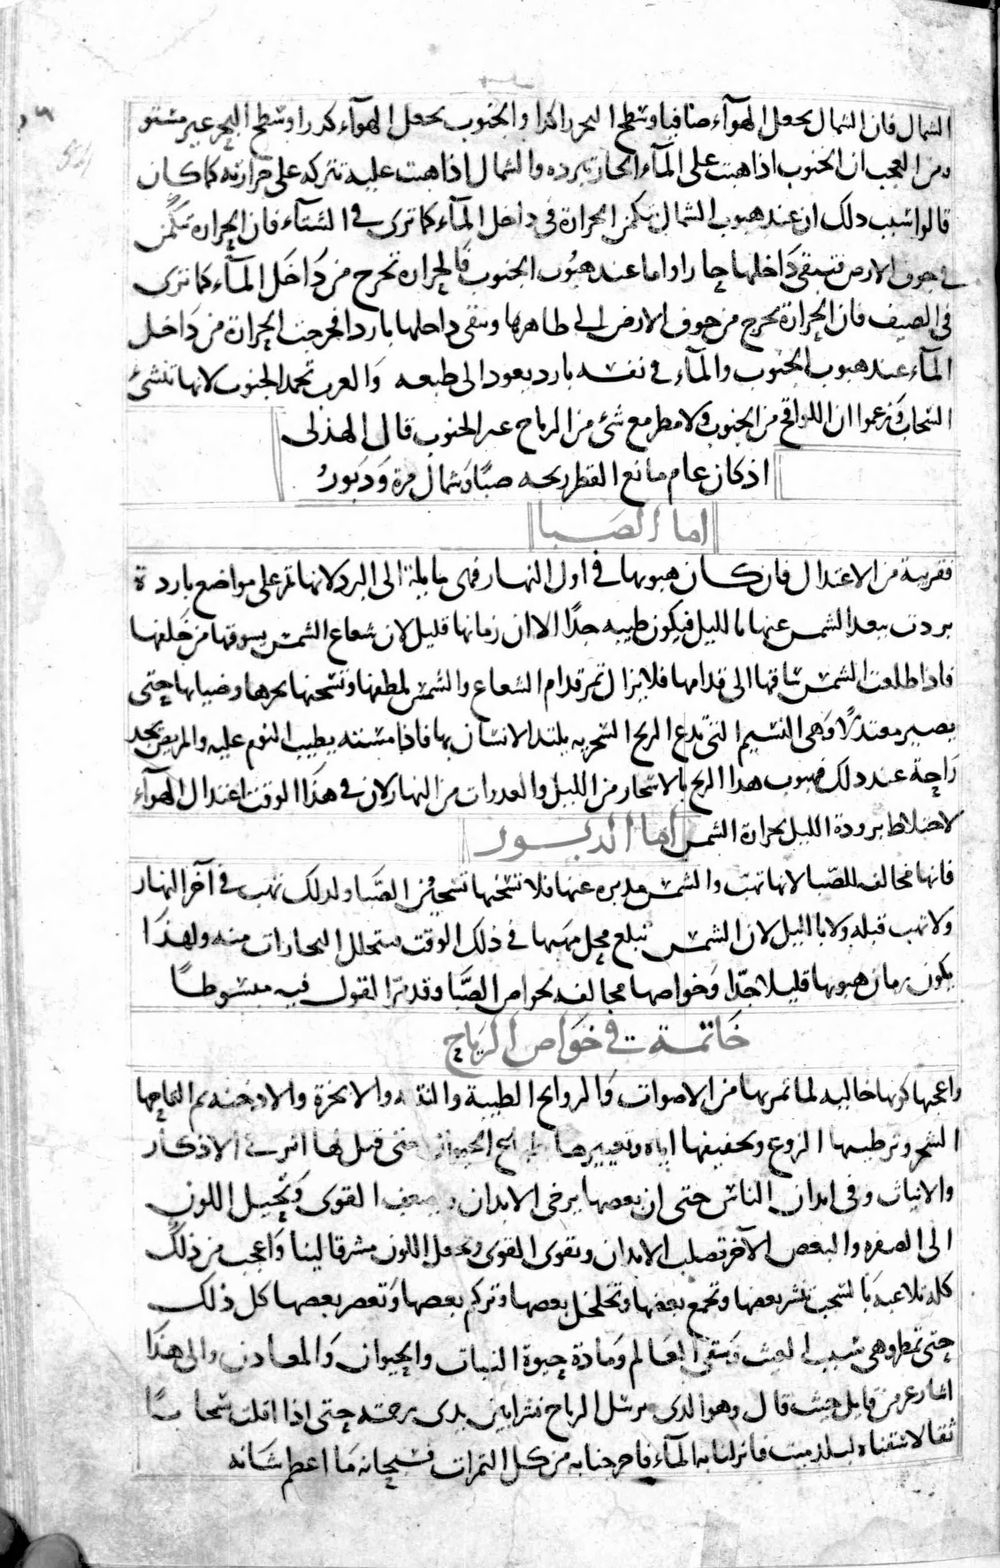 الشمال فان الشمال يجعل الهوآء صافيا وسطح البحر راكدا والجنوب يجعل الهوآء كدرا وسطح البحر غير مستو
ومن العجب ان الجنوب اذا هبت على المآء الحار تبرده والشمال اذا هبت عليه تتركه على حرارته كما كان
قالوا سبب ذلك ان عند هبوب الشمال تكمن الحرارة فى داخل المآء كما ترى فى الشتآء فان الحرارة تكمن
فى جوف الارض فتبقى داخلها حارا واما عند هبوب الجنوب فالحرارة تخرج من داخل المآء كما ترى
فى الصيف فان الحرارة تخرج من جوف الارض الى ظاهرها وتبقى داخلها باردا فخرجت الحرارة من داخل
المآء عند هبوب الجنوب والمآء فى نفسه بارد يعود الى طبعه والعرب تحمد الجنوب لانها تنشئ
السحاب وزعموا ان اللواقح من الجنوب ولا مطر مع شئ من الرياح غير الجنوب قال الهذلى
اذ كان عام مانع القطر ريحه صبا وشمال مرة ودبور
اما الصبا
فقريبة من الاعتدال فان كان هبوبها فى اول النهار فهى مايلة الى البرد لانها تمر على مواضع باردة
بردت ببعد الشمس عنها بالليل فيكون طيبه جدا الا ان زمانها قليل لان شعاع الشمس يسوقها من خلفها
فاذا طلعت الشمس ساقها الى قدامها فلا يزال تمر قدام الشعاع والشمس تلطفها وتسخنها بحرها وضياها حتى
يصير معتدلا وهى النسيم التى تدعى الريح السحرية يلتذ الانسان بها فاذا مسته يطيب النوم عليه والمريض يجد
راحة عند ذلك فهبوب هذا الريح بالاسحار من الليل والغدوات من النهار لان فى هذا الوقت اعتدال الهوآء
لاختلاط برودة الليل بحرارة الشمس اما الدبور
فانها مخالفه للصبا لانها تهب والشمس مدبره عنها فلا تسخنها تسخين الصبا ولذلك تهب فى آخر النهار
ولا تهب قبله ولا بالليل لان الشمس تبلغ محل مهبها فى ذلك الوقت يتحلل البخارات منه ولهذا
يكون زمان هبوبها قليلا جدا وخواصها مخالفه لخواص الصبا وقد مر القول فيه مبسوطا
خاتمة فى خواص الرياح
واعجبها كونها حاليه لما تمر بها من الاصوات والروايح الطيبة والنتنه والابخرة والادخنه ثم القاحها
الشجر وترطيبها الزروع وتجفيفها اياه وتغييرها طبايع الحيوان حتى قيل لها اثر فى الاذكار
والاناث وفى ابدان الناس حتى ان بعضها يرخى الابدان ويضعف القوى وتحيل اللون
الى الصفره والبعض الآخر تصلب الابدان وتقوى القوى وتجعل اللون مشرقا لينا واعجب من ذلك
كله تلاعبه بالسحب تنشر بعضها وتجمع بعضها وتخلخل بعضها وتركم بعضها وتعصر بعضها كل ذلك
حتى تمطر وهى سبب الغيث وتبقى العالم ومادة حيوة النبات والحيوان والمعادن والى هذا
اشار عز من قايل حيث قال وهو الذى يرسل الرياح نشرا بين يدى رحمته حتى اذا اقلت سحابا
ثقالا سقناه لبلد ميت فانزلنا به المآء فاخرجنا به من كل الثمرات فسبحانه ما اعظم شانه